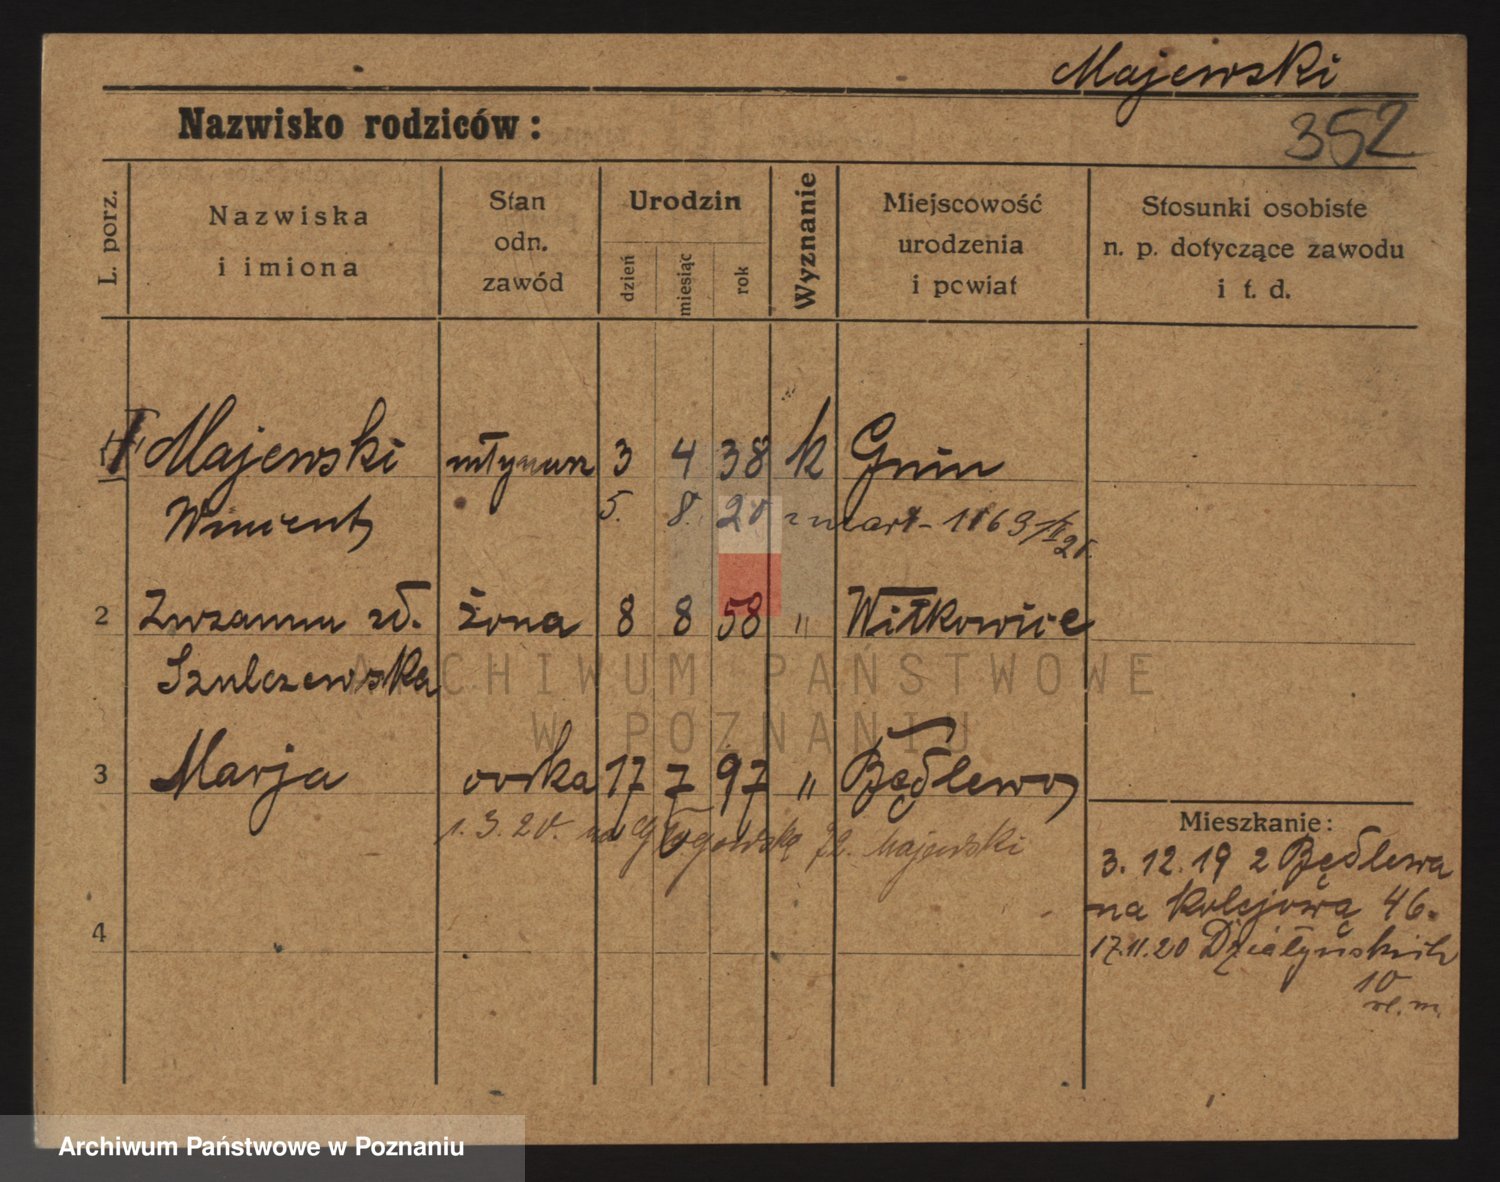 Majewski
352
Nazwisko rodziców:
L. porz.
Nazwiska
i imiona
Stan
odn.
zawód
Urodzin
dzień
miesiąc
rok
Wyznanie
Miejscowość
urodzenia
i powiat
Stosunki osobiste
n. p. dotyczące zawodu
i t. d.
1 Majewski młynarz 3 4 38 k Gnin
Wincenty 5. 8. 20 zmarł
2 Zuzanna żona 8 8 58 " Witkowice
Szulczewska
ARCHIWUM PAŃSTWOWE
W POZNANIU
3 Marja córka 17 7 97 " Będlewo
1. 3. 20. na Głogowską 72. Majewski
4
Mieszkanie:
3. 12. 19 z Będlewa
na Kolejową 46.
17.11.20 Działyńskich
10
Archiwum Państwowe w Poznaniu